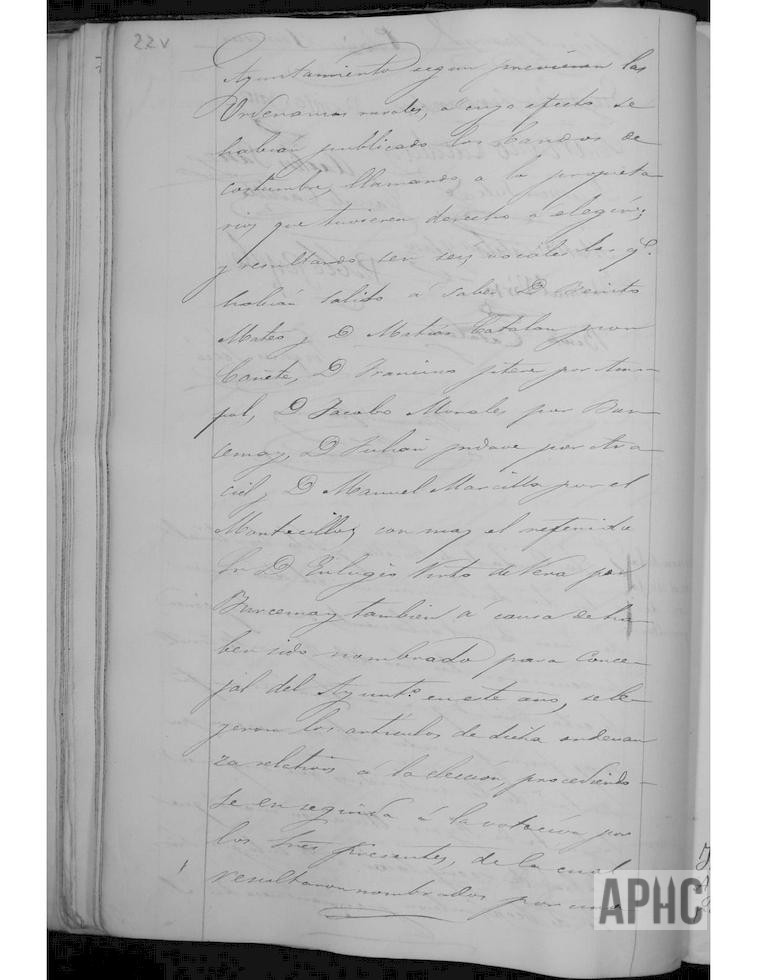 22v
Ayuntamiento segun previenen las
Ordenanzas rurales, a cuyo efecto se
habian publicado los bandos de
costumbre, llamando a los propieta
rios que tuvieren derecho a elegir;
y resultando ser seis vocales los q.e
habian salido a saber D. Benito
Mateo y D. Matias Catalan por
Cañete, D. Francisco Pitere por tem-
pul, D. Jacobo Morales por Bur-
cemay, D. Julian por otra-
cil, D. Manuel Marcilla por el
Montecillo, con mas el referido
Sr D. Eulogio Virto de Vera por
Burcemay tambien á causa de ha
ber sido nombrado para Conce-
jal del Ayunt.o en este año, se le-
yeron los articulos de dicha ordenan
za relativos á la eleccion, procediendo-
se en seguida á la votacion por
los tres presentes, de la cual
resultaron nombrados por una
APHC